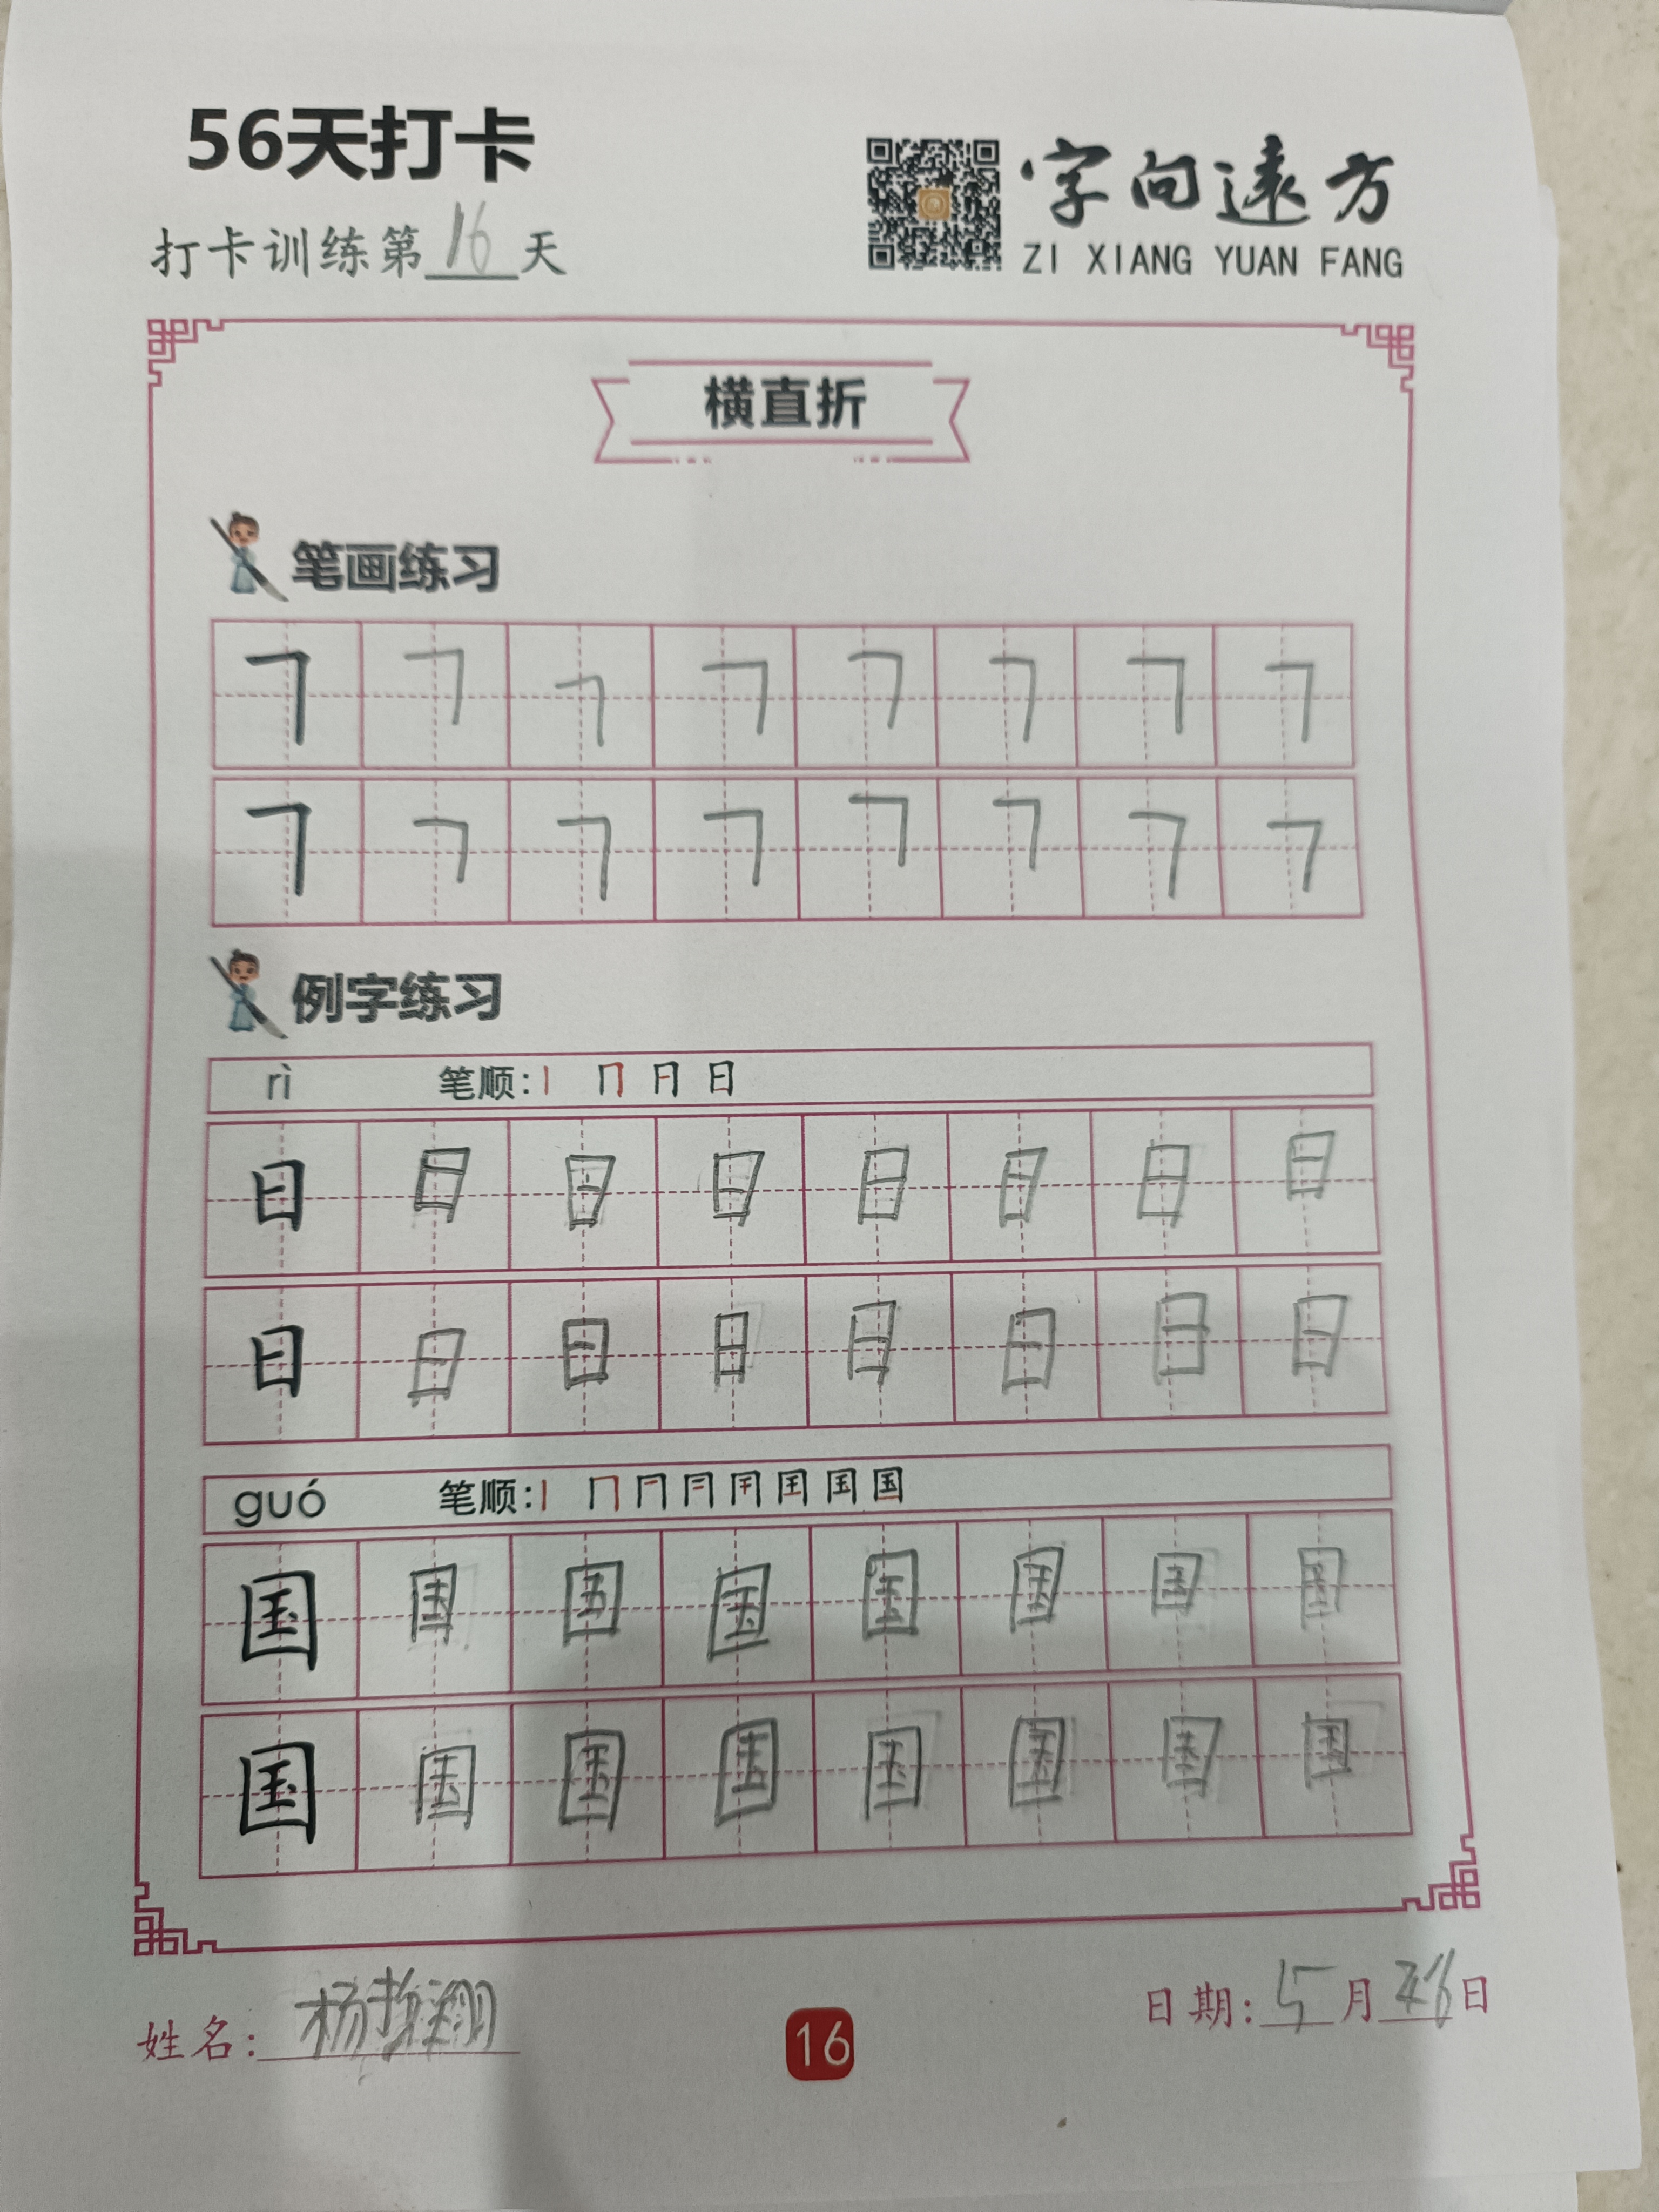 56天打卡
打卡训练第16天
字向遠方
ZI XIANG YUAN FANG
横直折
笔画练习
㇕ ㇕ ㇕ ㇕ ㇕ ㇕ ㇕ ㇕
㇕ ㇕ ㇕ ㇕ ㇕ ㇕ ㇕ ㇕
例字练习
rì 笔顺: 丨 冂 日
日 日 日 日 日 日 日 日
日 日 日 日 日 日 日 日
guó 笔顺: 丨 冂 国
国 国 国 国 国 国 国 国
国 国 国 国 国 国 国 国
姓名: 杨
16
日期: 5月 日